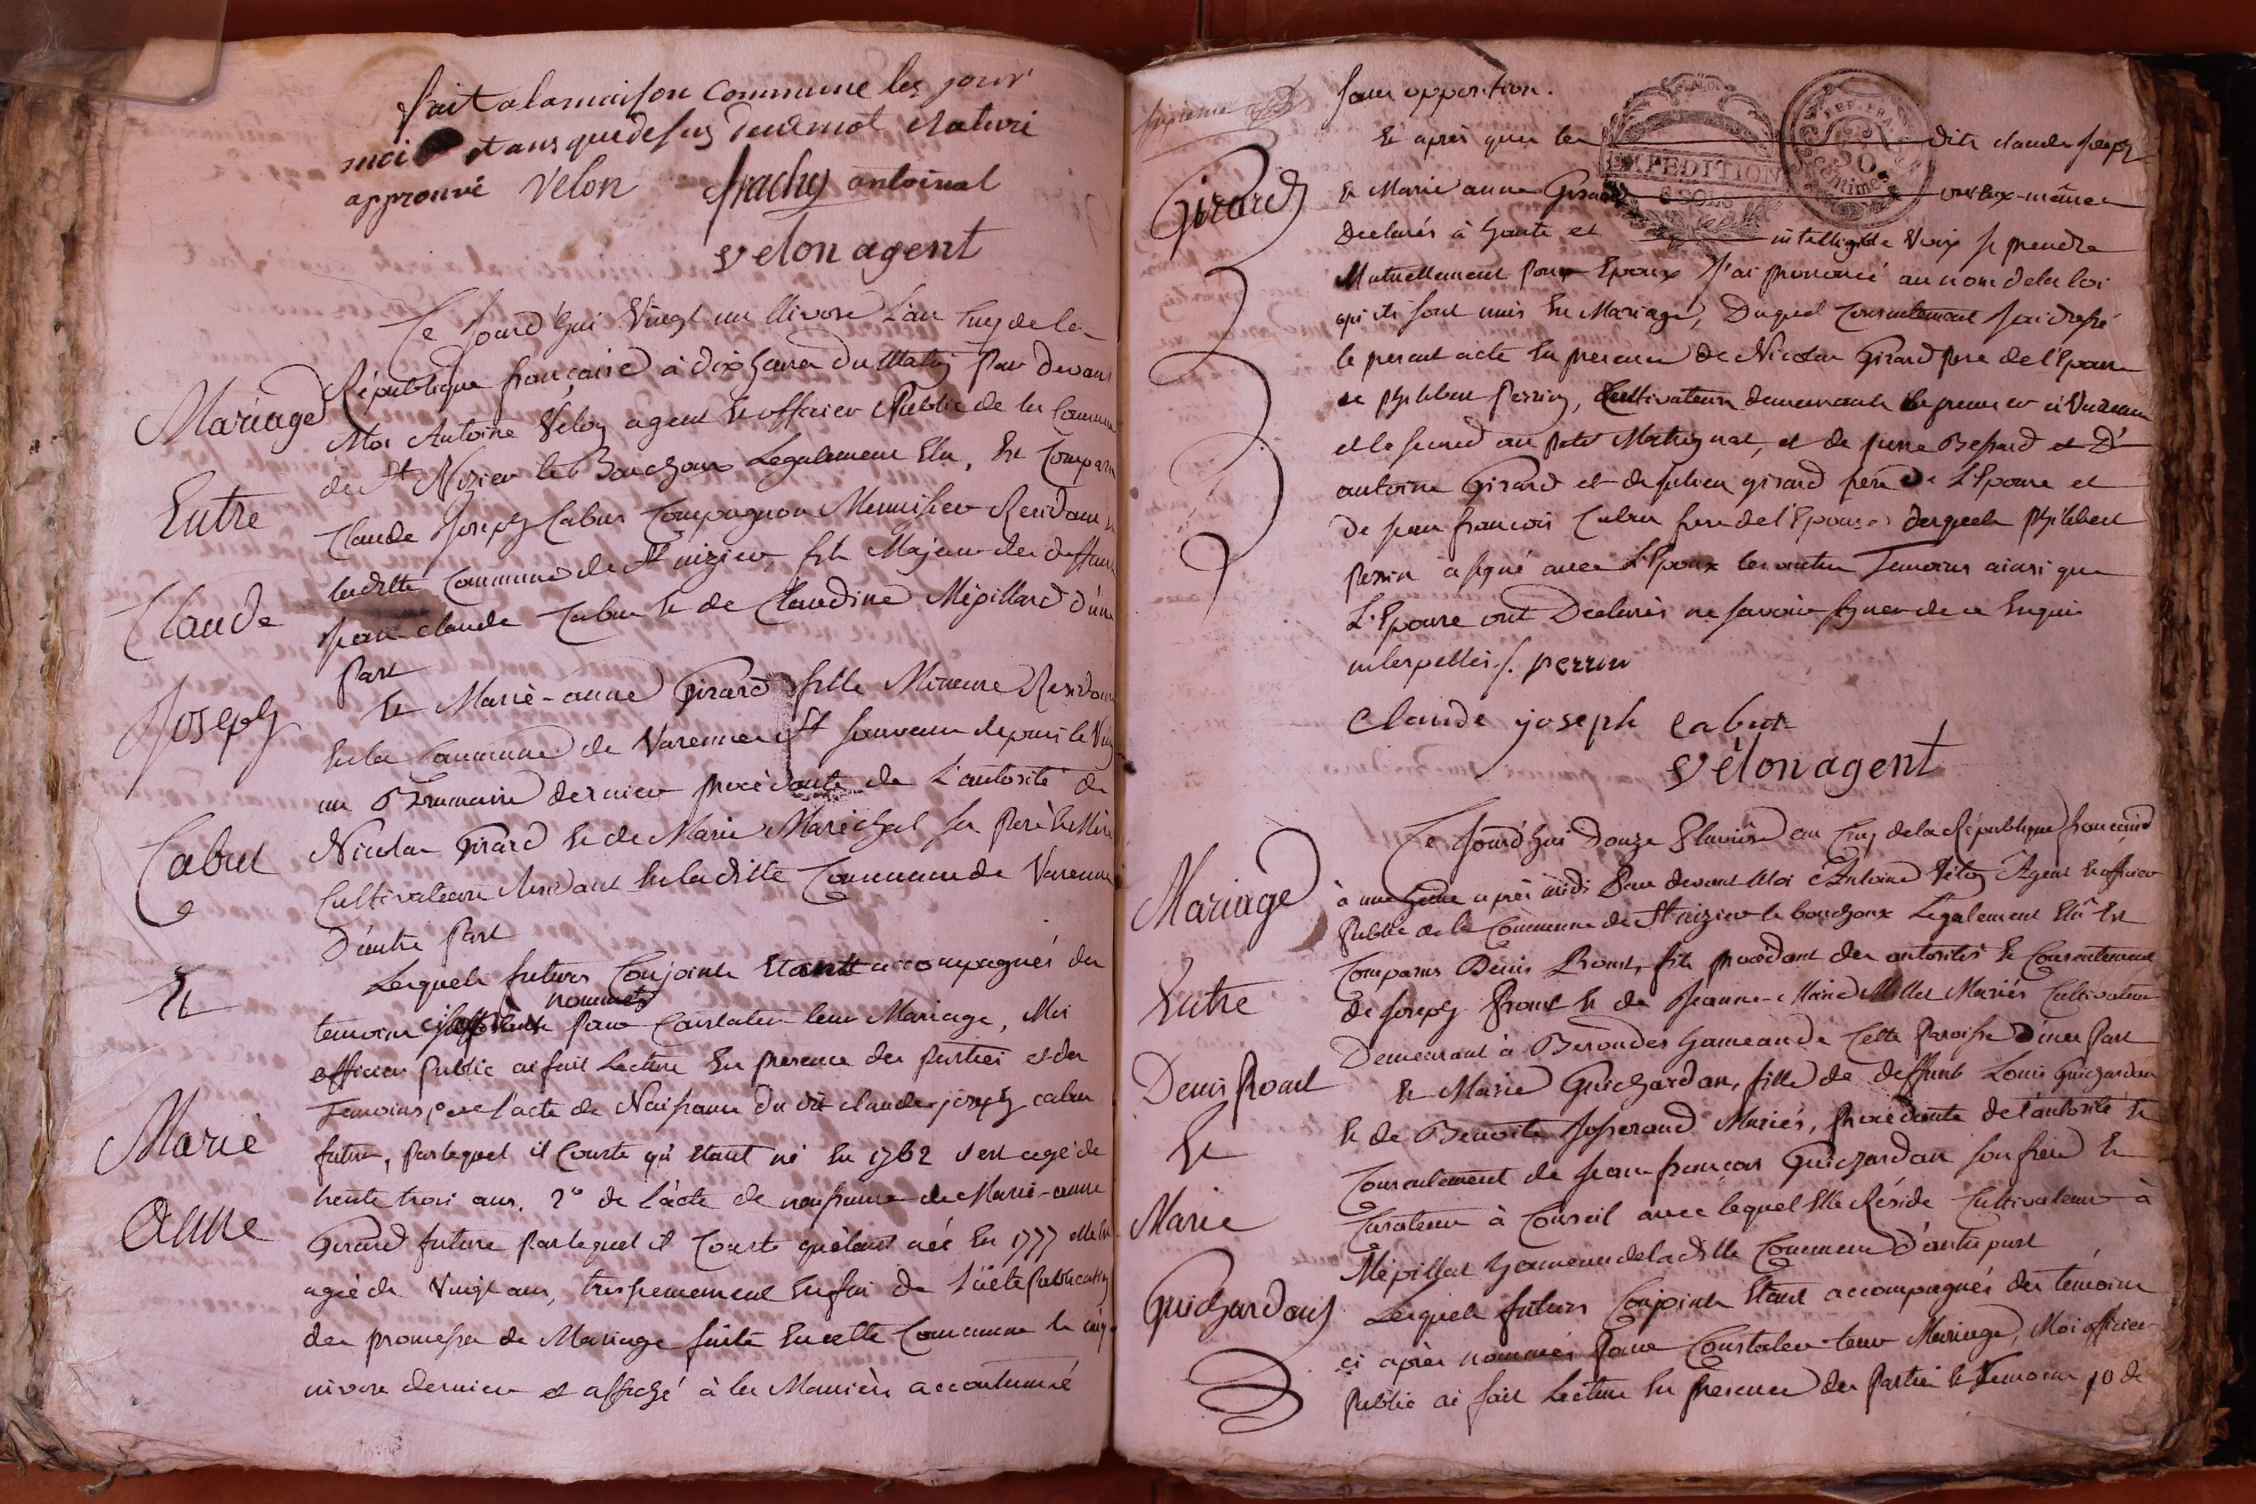 fait a la maison commune les jour
moi et ans que desus deux mot rature
approuvé Velon frachy antoinat
velon agent
Ce Jourd'hui Vingt un Nivose L'an Cinq de la
République française à dix heures du Matin Par devant
Moi Antoine Velon agent et officier Public de la Commune
de St Nizier le Bouchoux Légalement Elu, Est Comparu
Claude Joseph Cabut Compagnon Menuisier Residant en
ladite Commune de St nizier, fils Majeur des deffunts
Jean claude Cabut et de Claudine Mépillard d'une
Part
Et Marie-anne Girard fille Mineure Residant
En la Commune de Varenne St Sauveur depuis le Vingt
un Brumaire dernier procédante de L'autorité de
Nicolas Girard et de Marie Maréchal ses Père et Mère
Cultivateurs Residant En ladite Commune de Varenne
D'autre Part
Lesquels futurs Conjoints Etant accompagnés des
temoins ci après nommés pour Constater leur Mariage, Moi
officier Public ai fait Lecture En presence des Parties et des
Temoins, 1° de l'acte de Naissance du dit claude joseph cabut
futur, par lequel il Conste qu'étant né En 1762 il est agé de
trente trois ans. 2° de l'acte de naissance de Marie-anne
Girard future par lequel il Conste qu'étant née En 1777 elle est
agée de Vingt ans, troisiemement Enfin de l'acte Publication
des promesses de Mariage faite En cette Commune le cinq
nivose dernier et affiché à la Manière accoutumé
Mariage
Entre
Claude
Joseph
Cabut
Et
Marie
Anne
Sans opposition.
Et après que les dits claude Joseph
Et Marie anne Girard ont Eux-mêmes
Declarés à haute et intelligible Voix se prendre
Mutuellement Pour Epoux J'ai prononcé au nom de la loi
qu'ils sont unis En Mariage, Duquel Consentement J'ai dressé
le present acte En presence de Nicolas Girard Pere de l'Epouse
et philibert Perrin, Cultivateurs demeurants le premier à Varenne
et le second au Petit Matignat, et de Pierre Bessard et D'
antoine Girard et de Julien girard père de L'Epouse et
de Jean francois Cabut frere de l'Epoux desquels Philibert
Perrin a signé avec L'Epoux les autres Temoins ainsi que
L'Epouse ont Declarés ne savoir signer de ce Enquis
interpellés ./. perrin
Claude joseph cabut
vélon agent
Girard
EXPEDITION
8 SOLS
REP. FRA.
50
CENTIMES
Ce Jourd'hui Douze Pluviose an Cinq de la République française
à une heure après midi Par devant Moi Antoine Vélon Agent et officier
Public de la Commune de St nizier le bouchoux Légalement Elu Est
Comparus Denis Prout, fils procédant des autorités et Consentement
de Joseph Prout et de Jeanne-Marie Millet Mariés Cultivateurs
Demeurant à Berondes hameau de Cette Paroisse D'une Part
Et Marie Guichardan, fille de deffunt Louis Guichardan
Et de Benoite Josserand Mariés, procédante de l'autorité et
Consentement de Jean francois Guichardan son frère et
Curateur à Conseil avec lequel Elle Réside Cultivateur à
Mépillat hameau de ladite Commune D'autre part
Lesquels futurs Conjoints Etant accompagnés des temoins
ci après nommés Pour Constater leur Mariage, Moi officier
Public ai fait Lecture En Presence des Parties et Temoins 1° de
Mariage
Entre
Denis Prout
Et
Marie
Guichardan